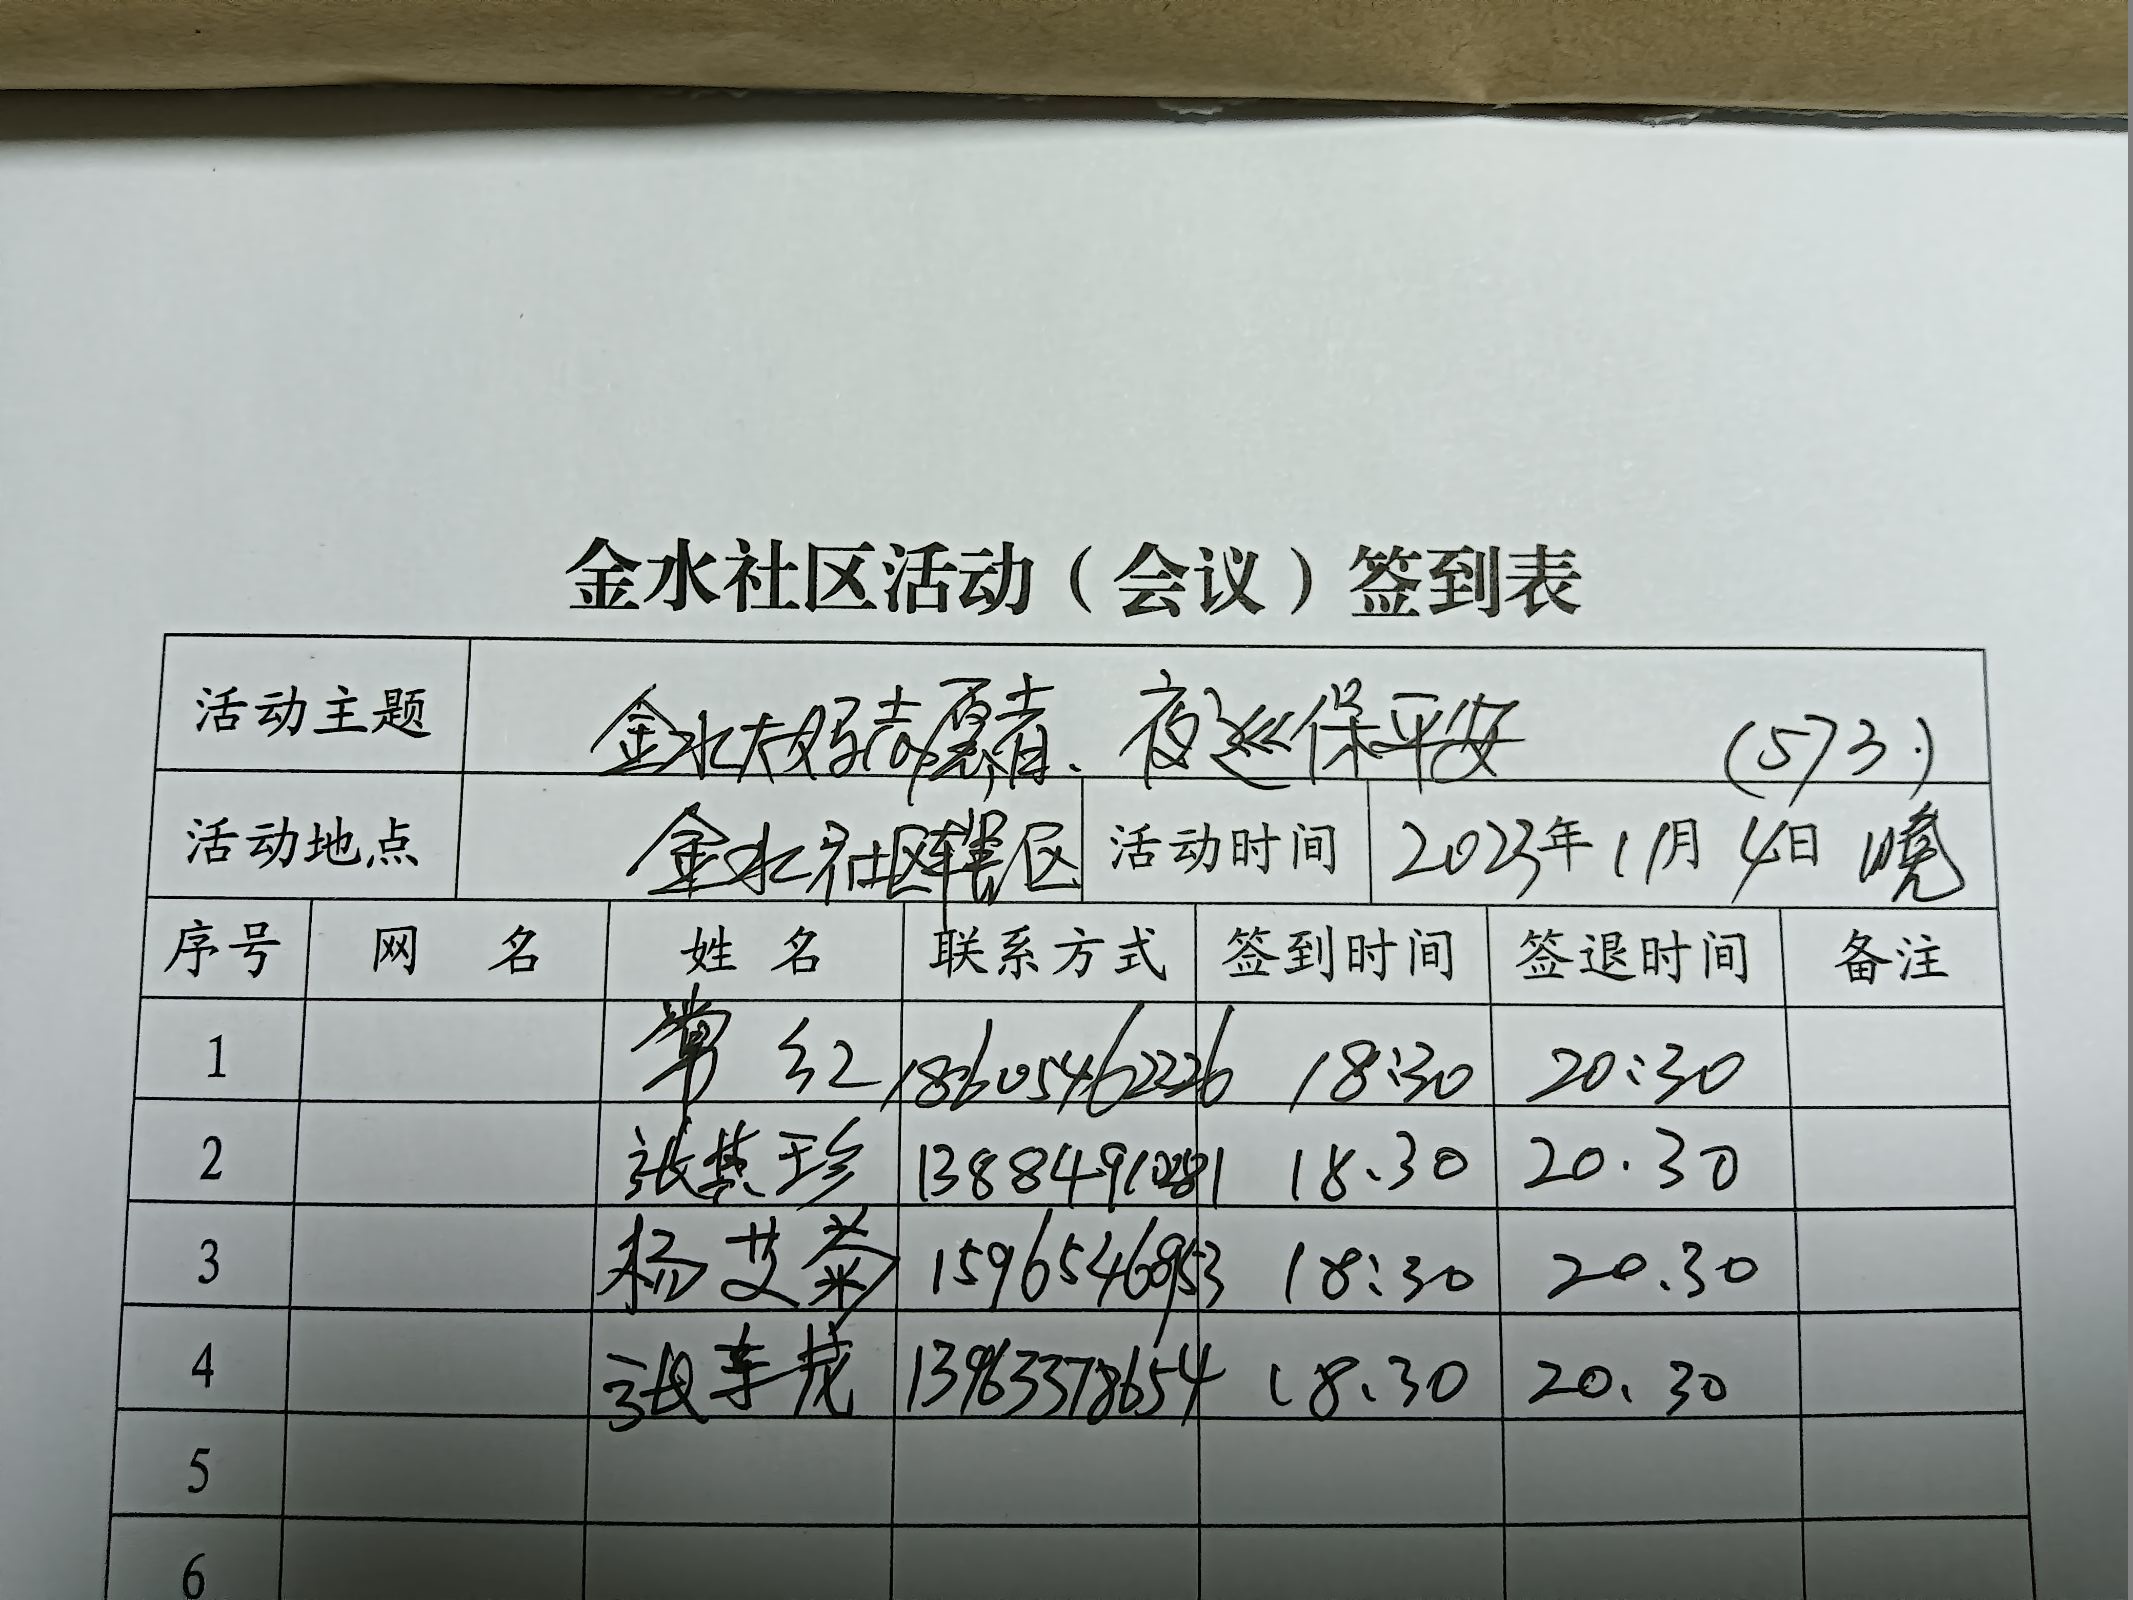 金水社区活动（会议）签到表
活动主题 金水大妈志愿者、夜巡保平安 (573.)
活动地点 金水社区辖区 活动时间 2023年11月4日 晚
序号 网 名 姓 名 联系方式 签到时间 签退时间 备注
1 常红 18605462226 18:30 20:30
2 张其珍 13884910281 18.30 20.30
3 杨艾菊 15965468953 18:30 20.30
4 张 13963378654 18.30 20.30
5
6